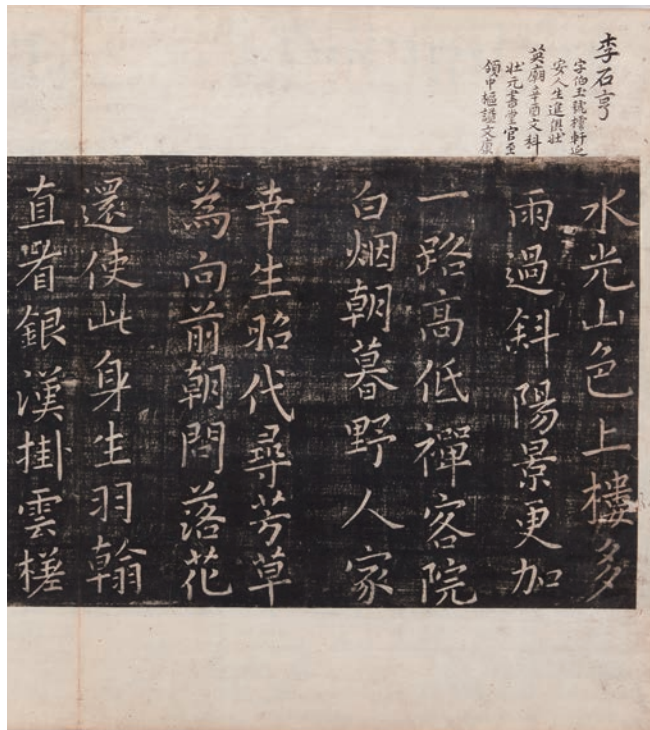 李石亨
字伯玉號樗軒延
安人生進俱壯
英廟辛酉文科
壯元書堂官至
領中樞諡文康
水光山色上樓多
雨過斜陽景更加
一路高低禪客院
白烟朝暮野人家
幸生昭代尋芳草
為向前朝問落花
還使此身生羽翰
直看銀漢掛雲槎